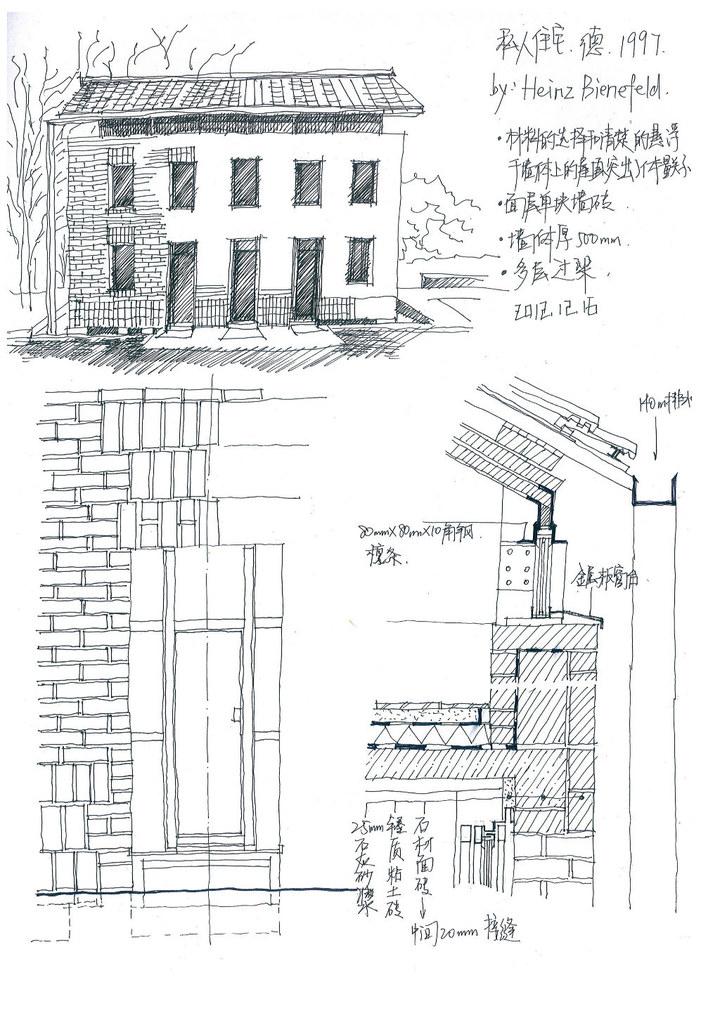 私人住宅.德.1997.
by: Heinz Bienefeld.
·材料的选择和清楚的悬浮
于墙体上的屋面突出了体量关系
·面层单块墙砖.
·墙体厚500mm.
·多层过梁.
2012.12.15
140m排水
80mm×80mm×10角钢
檩条.
金属板窗台.
25mm石灰砂浆
轻质粘土砖
石材面砖
中间20mm 接缝